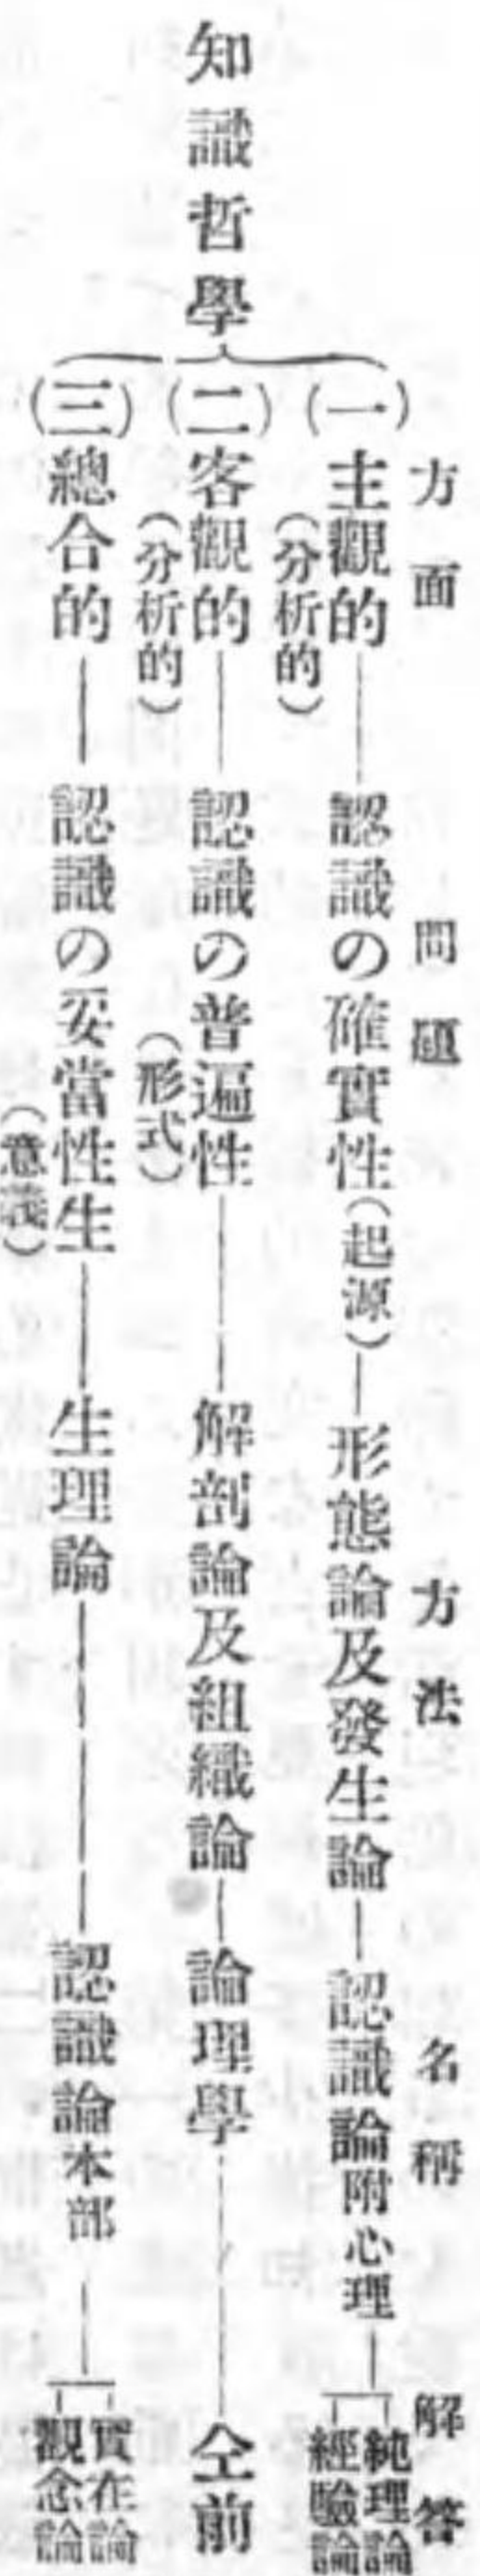 知識哲學
方面 問題 方法 名稱 解答
(一)主觀的(分析的)―認識の確實性(起源)―形態論及發生論―認識論附心理―純理論 經驗論
(二)客觀的(分析的)―認識の普遍性(形式)―解剖論及組織論―論理學―仝前
(三)總合的―認識の妥當性生(意義)―生理論―認識論本部―實在論 觀念論